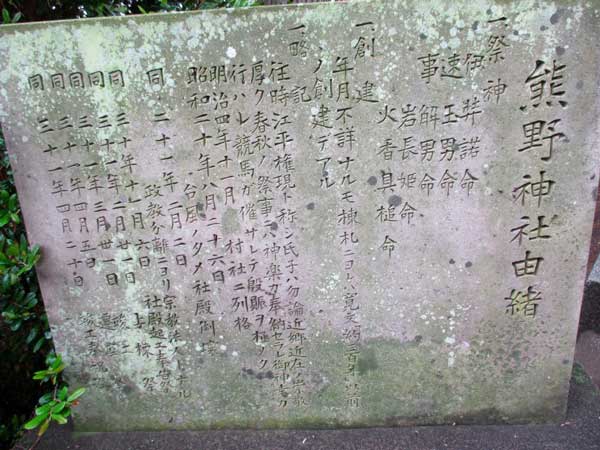 熊野神社由緒
一、祭神
伊弉諾命
速玉男命
事解男命
岩長姫命
火香具槌命
一、創建
年月不詳ナルモ棟札ニヨレバ寛文
ノ創建デアル
一、略記
往時江平権現ト称シ氏子ハ勿論近郷近在ノ崇敬
厚ク春秋ノ祭事ニハ神楽ガ奉納セラレ御神幸ガ
行ハレ競馬ガ催サレテ殷賑ヲ極ム
明治四年十一月 村社ニ列格
昭和二十年八月二十六日
台風ノタメ社殿倒壊
同 二十一年二月二日
政教分離ニヨリ宗教法人トナル
同 三十年十一月六日 社殿起工奉告祭
同 三十一年二月廿一日 上棟祭
同 三十一年三月廿一日 竣工
同 三十一年四月五日
同 三十一年四月二十日